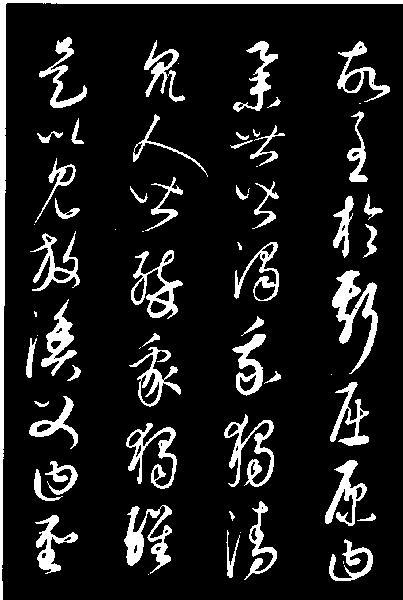 故至於斯屈原曰
舉世皆濁我獨清
眾人皆醉我獨醒
是以見放漁父曰聖